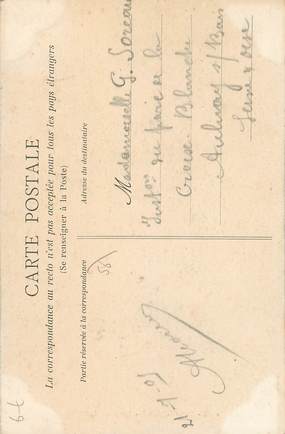 CARTE POSTALE
La correspondance au recto n'est pas acceptée pour tous les pays étrangers
(Se renseigner à la Poste)
Partie réservée à la correspondance
Adresse du destinataire
58
Mademoiselle G. Soreau
du parc de la
Croix Blanche
Aulnay s/ Bois
Seine & Oise
6€